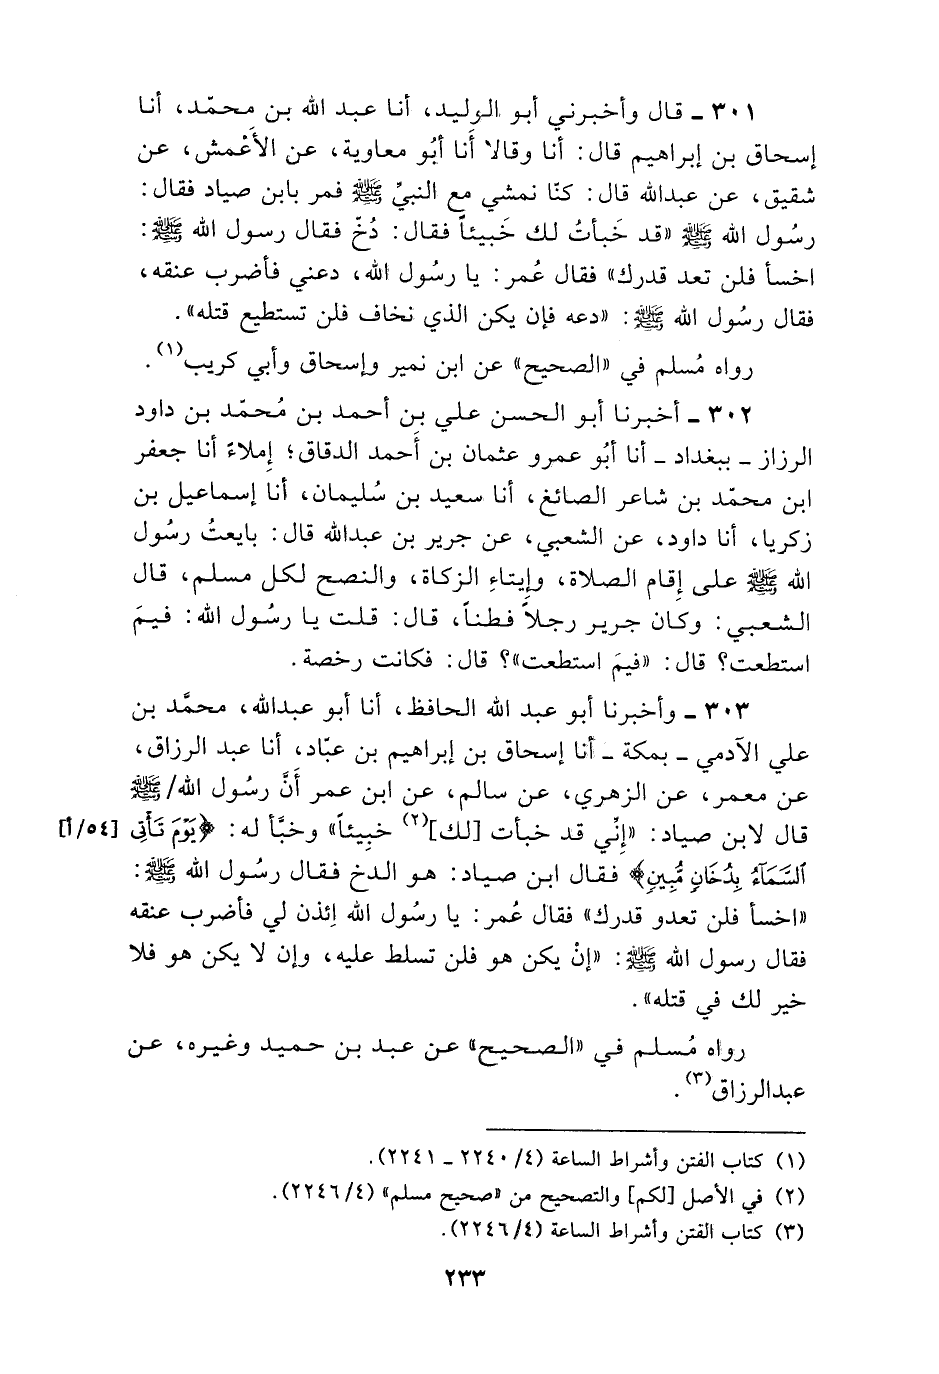 ٣٠١ ـ قال وأخبرني أبو الوليد، أنا عبد الله بن محمّد، أنا
إسحاق بن إبراهيم قال: أنا وقالا أَنا أبُو معاوية، عن الأَعْمش، عن
شقيق، عن عبدالله قال: كنّا نمشي مع النبيِّ ﷺ فمر بابن صياد فقال:
رسُول الله ﷺ «قد خَبأتُ لك خَبيئاً فقال: دُخّ فقال رسول الله ﷺ:
اخسأ فلن تعد قدرك» فقال عُمر: يا رسُول الله، دعني فأضرب عنقه،
فقال رسُول الله ﷺ: «دعه فإن يكن الذي نخاف فلن تستطيع قتله».
رواه مُسلم في «الصحيح» عن ابن نمير وإسحاق وأبي كريب(١).
٣٠٢ ـ أخبرنا أبو الحسن علي بن أحمد بن مُحمّد بن داود
الرزاز ـ ببغداد ـ أنا أبُو عمرو عثمان بن أَحمد الدقاق؛ إِملاءً أنا جعفر
ابن محمّد بن شاعر الصائغ، أنا سعيد بن سُليمان، أنا إسماعيل بن
زكريا، أنا داود، عن الشعبي، عن جرير بن عبدالله قال: بايعتُ رسُول
الله ﷺ على إِقام الصلاة، وإِيتاءِ الزكاة، والنصح لكل مسلم، قال
الشعبي: وكان جرير رجلاً فطناً، قال: قلت يا رسُول الله: فيمَ
استطعت؟ قال: «فيمَ استطعت»؟ قال: فكانت رخصة.
٣٠٣ ـ وأخبرنا أبو عبد الله الحافظ، أنا أبو عبدالله، محمَّد بن
علي الآدمي ـ بمكة ـ أنا إسحاق بن إبراهيم بن عبّاد، أنا عبد الرزاق،
عن معمر، عن الزهري، عن سالم، عن ابن عمر أنَّ رسُول الله/ﷺ
قال لابن صياد: «إنِّي قد خبأت [لك](٢) خبيئاً» وخبَّأ له: ﴿يَوْمَ تَأْتِى [٥٤/أ]
ٱلسَّمَآءُ بِدُخَانٍ مُّبِينٍ﴾ فقال ابن صياد: هو الدخ فقال رسُول الله ﷺ:
«اخسأ فلن تعدو قدرك» فقال عُمر: يا رسُول الله اِئذن لي فأضرب عنقه
فقال رسول الله ﷺ: «إنْ يكن هو فلن تسلط عليه، وإن لا يكن هو فلا
خير لك في قتله».
رواه مُسلم في «الصحيح» عن عبد بن حميد وغيره، عن
عبدالرزاق(٣).
(١) كتاب الفتن وأشراط الساعة (٤/ ٢٢٤٠ ـ ٢٢٤١).
(٢) في الأصل [لكم] والتصحيح من «صحيح مسلم» (٤/ ٢٢٤٦).
(٣) كتاب الفتن وأشراط الساعة (٤/ ٢٢٤٦).
٢٣٣